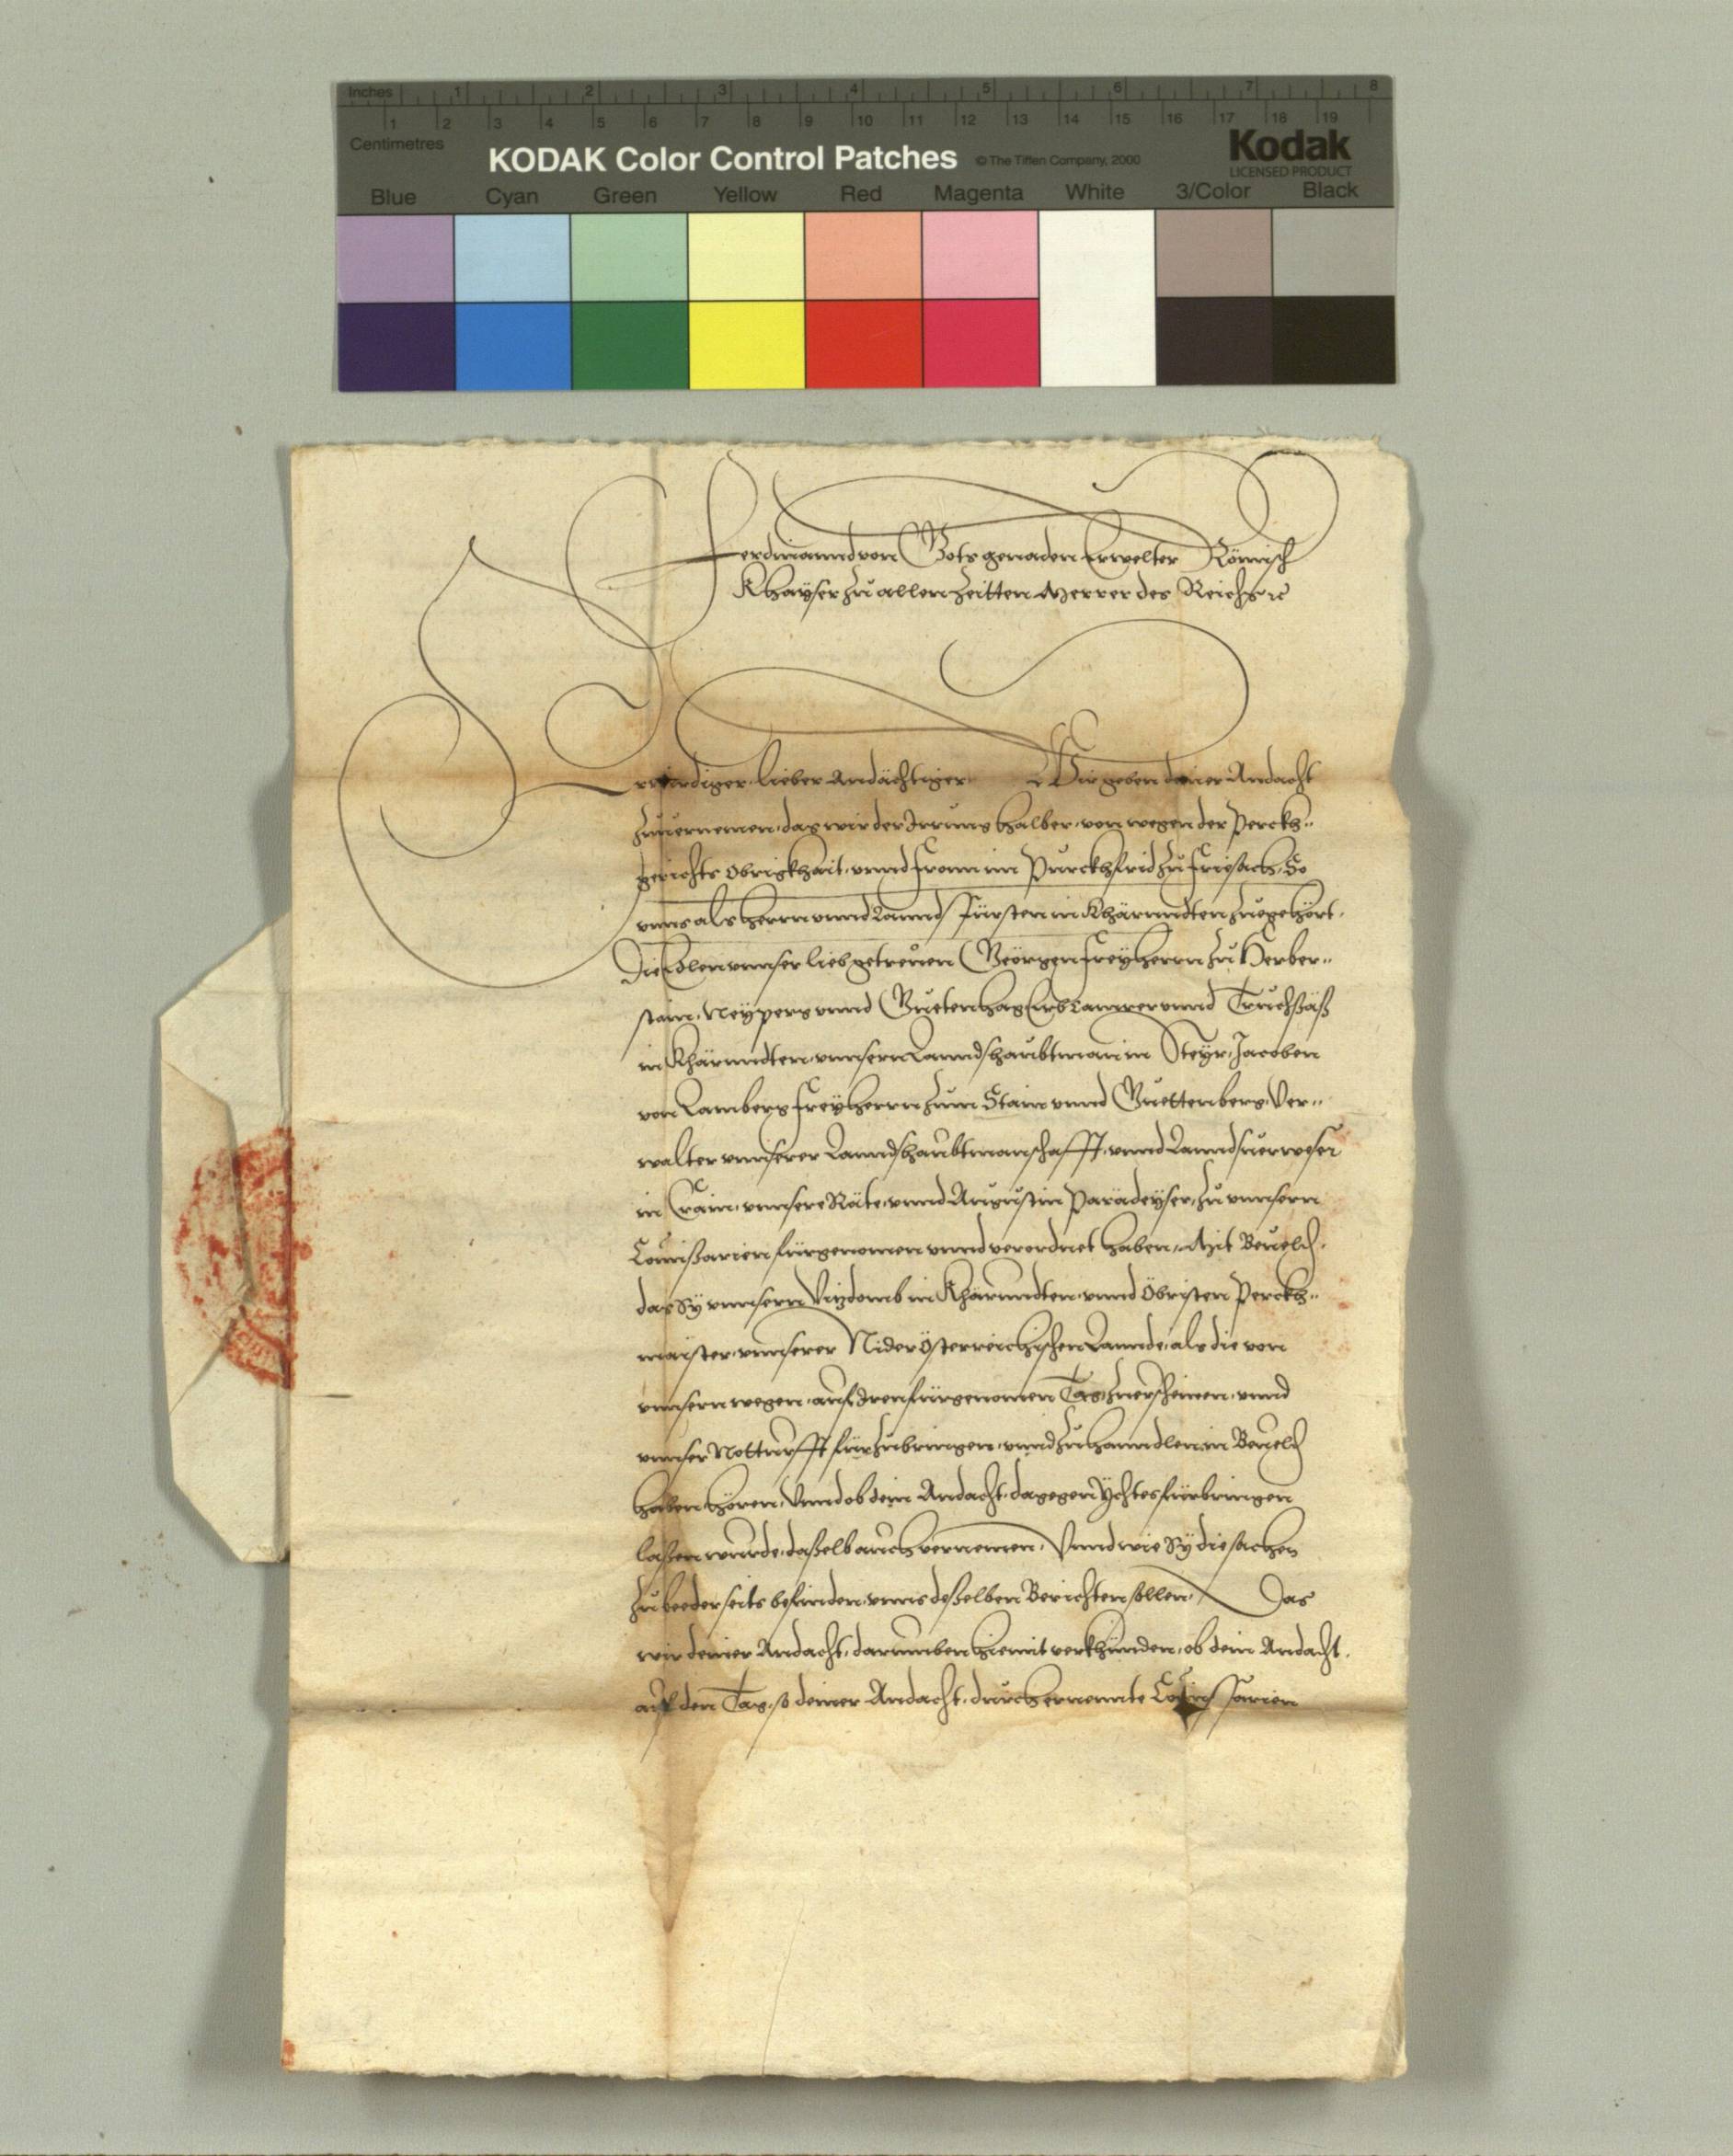 Inches 1 2 3 4 5 6 7 8
1 2 3 4 5 6 7 8 9 10 11 12 13 14 15 16 17 18 19
Centimetres
KODAK Color Control Patches © The Tiffen Company, 2000 Kodak
LICENSED PRODUCT
Blue Cyan Green Yellow Red Magenta White 3/Color Black
Ferdinannd von Gots genaden Erwelter Römisch
Khayser zu allen Zeitten Merrer des Reichs rc
Erwirdiger lieber Andächtiger. Wir geben deiner Andacht
zuuernemen, das wir der Irrung halber, von wegen der Perckh-
gerichts Obrigkhait, vnnd Fronn im Purckhfrid zu Friesach, So
vnns als Herrn vnnd Lannd Fürsten in Khärnndten zuegehört.
Die Edlen vnnser lieb getreuen Georgen Freyherrn zu Herber-
stain, Neyperg vnnd Guetenhag Erb Camrer vnnd Truchsäß
in Khärnndten, vnnsern Lanndshaubtman in Steyr, Jacoben
von Lamberg Freyherrn zum Stain vnnd Guettenberg, Ver-
walter vnnserer Lanndshaubtmanschafft, vnnd Lanndsuerweser
in Crain, vnnsere Räte, vnnd Augustin Paradeyser, zu vnnsern
Comißarien fürgenomen vnnd verordnet haben, Mit Beuelch,
das Sy vnnsern Vizdomb in Khärnndten, vnnd Obristen Perckh-
maister, vnnserer Niderösterreichischen Lannde, als die von
vnnsern wegen, auf Iren fürgenomen Tag zuerscheinen, vnnd
vnnser Notturfft fürzubringen, vnnd zuhanndlen, in Beuelch
haben, hören, Vnnd ob dein Andacht, dagegen Ychtes fürbringen
laßen wurde, daßelb auch vernemen, Vnnd wie Sy die sachen
zu beederseits befinden, vnns deßelben Berichten sollen. Das
wir deiner Andacht, darumben hiemit verkhünden, ob dein Andacht,
auf den Tag, so deiner Andacht, durch ernennte Comissarien